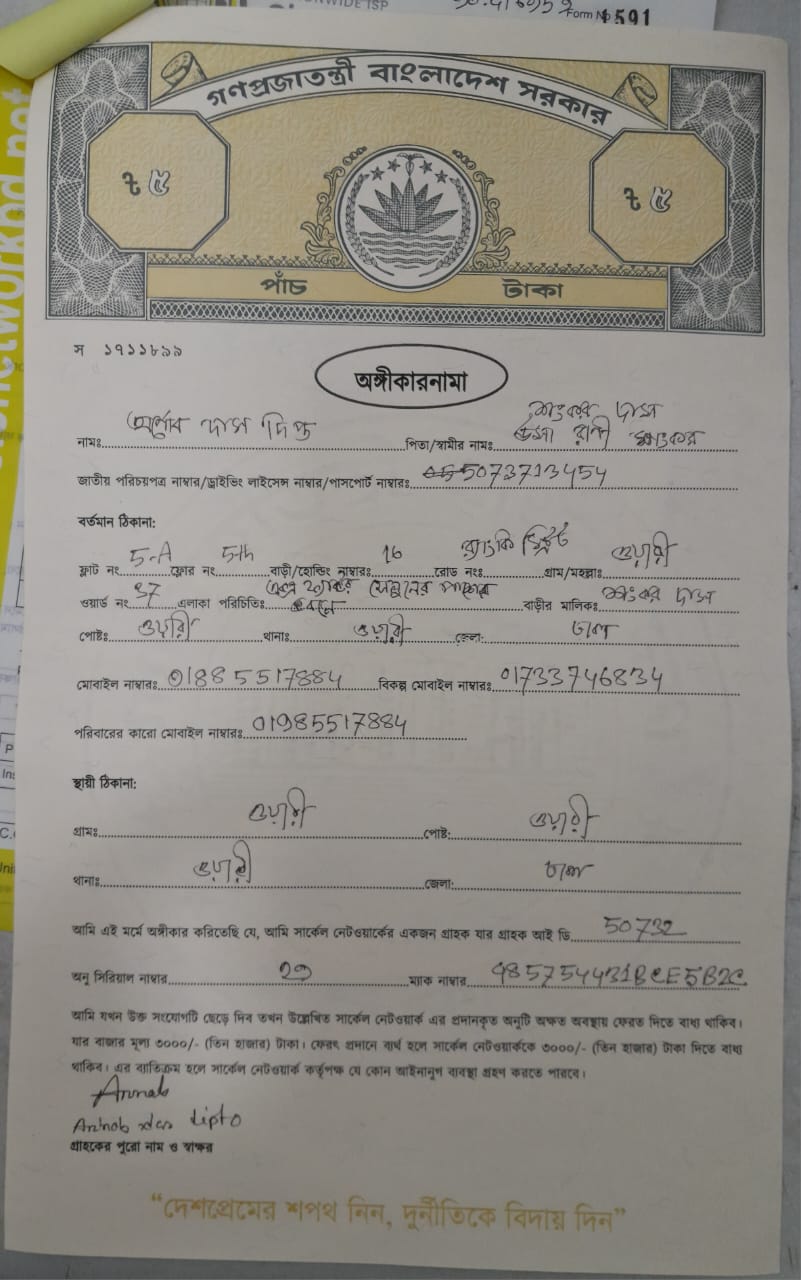 NWIDE ISP
Form No 1591
গণপ্রজাতন্ত্রী বাংলাদেশ সরকার
৳ ৫
৳ ৫
পাঁচ টাকা
স ১৭১১৮৯৯
অঙ্গীকারনামা
শংকর দাস
নামঃ অর্নব দাস দিপ্ত পিতা/স্বামীর নামঃ রানী
জাতীয় পরিচয়পত্র নাম্বার/ড্রাইভিং লাইসেন্স নাম্বার/পাসপোর্ট নাম্বারঃ 5073713454
বর্তমান ঠিকানা:
ফ্লাট নং 5-A ফ্লোর নং 5th বাড়ী/হোল্ডিং নাম্বারঃ 16 রোড নংঃ র‍্যাংকিন স্ট্রিট গ্রাম/মহল্লাঃ ওয়ারী
ওয়ার্ড নং 37 এলাকা পরিচিতিঃ সেলুনের পাশের বাড়ীর মালিকঃ শংকর দাস
পোষ্টঃ ওয়ারী থানাঃ ওয়ারী জেলা: ঢাকা
মোবাইল নাম্বারঃ 01885517884 বিকল্প মোবাইল নাম্বারঃ 01733746834
পরিবারের কারো মোবাইল নাম্বারঃ 01985517884
স্থায়ী ঠিকানা:
গ্রামঃ ওয়ারী পোষ্ট: ওয়ারী
থানাঃ ওয়ারী জেলা: ঢাকা
আমি এই মর্মে অঙ্গীকার করিতেছি যে, আমি সার্কেল নেটওয়ার্কের একজন গ্রাহক যার গ্রাহক আই ডি 50732
অনু সিরিয়াল নাম্বার 29 ম্যাক নাম্বার 485754431BCE5B2C
আমি যখন উক্ত সংযোগটি ছেড়ে দিব তখন উল্লেখিত সার্কেল নেটওয়ার্ক এর প্রদানকৃত অনুটি অক্ষত অবস্থায় ফেরত দিতে বাধ্য থাকিব।
যার বাজার মূল্য ৩০০০/- (তিন হাজার) টাকা। ফেরৎ প্রদানে ব্যর্থ হলে সার্কেল নেটওয়ার্ককে ৩০০০/- (তিন হাজার) টাকা দিতে বাধ্য
থাকিব। এর ব্যতিক্রম হলে সার্কেল নেটওয়ার্ক কর্তৃপক্ষ যে কোন আইনানুগ ব্যবস্থা গ্রহণ করতে পারবে।
Arnab
Arnob das dipto
গ্রাহকের পুরো নাম ও স্বাক্ষর
“দেশপ্রেমের শপথ নিন, দুর্নীতিকে বিদায় দিন”